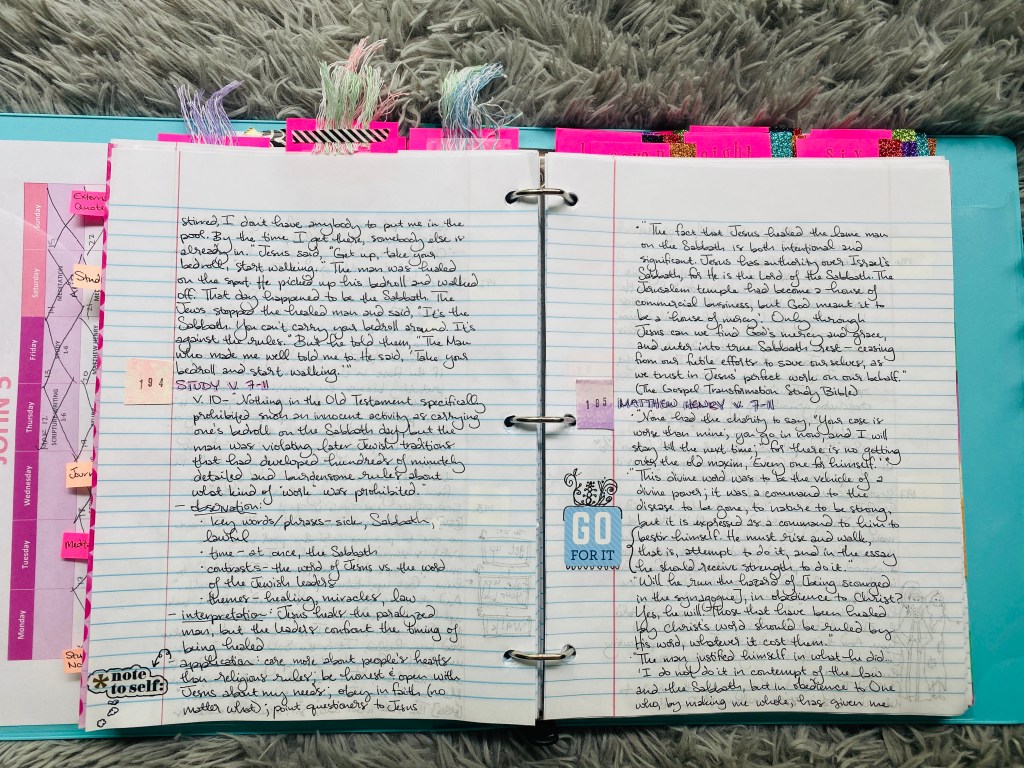 JOHN 5
Sunday
Saturday
Friday
Thursday
Wednesday
Tuesday
Monday
External
Quote
Stud
Journ
Medit
Stu
No
stirred, I don't have anybody to put me in the
pool. By the time I get there, somebody else is
already in." Jesus said, "Get up, take your
bedroll, start walking." The man was healed
on the spot. He picked up his bedroll and walked
off. That day happened to be the Sabbath. The
Jews stopped the healed man and said, "It's the
Sabbath. You can't carry your bedroll around. It's
against the rules." But he told them, "The Man
who made me well told me to. He said, 'Take your
bedroll and start walking.'"
194
STUDY V. 7-11
V. 10- "Nothing in the Old Testament specifically
prohibited such an innocent activity as carrying
one's bedroll on the Sabbath day, but the
man was violating later Jewish traditions
that had developed hundreds of minutely
detailed and burdensome rules about
what kind of 'work' was prohibited."
- observation:
· key words/phrases- sick, Sabbath,
lawful
· time - at once, the Sabbath
· contrasts - the word of Jesus vs. the word
of the Jewish leaders
· themes - healing, miracles, law
- interpretation: Jesus heals the paralyzed
man, but the leaders confront the timing of
being healed
- application: care more about people's hearts
than religious rules; be honest & open with
Jesus about my needs; obey in faith (no
matter what); point questioners to Jesus
*note
to self:
eight
six
· "The fact that Jesus healed the lame man
on the Sabbath is both intentional and
significant. Jesus has authority over Israel's
Sabbath, for He is the Lord of the Sabbath. The
Jerusalem temple had become a house of
commercial business, but God meant it to
be a 'house of mercy.' Only through
Jesus can we find God's mercy and grace,
and enter into true Sabbath rest - ceasing
from our futile efforts to save ourselves, as
we trust in Jesus' perfect work on our behalf."
(The Gospel Transformation Study Bible)
195
MATTHEW HENRY V. 7-11
· "None had the charity to say, 'Your case is
worse than mine; you go in now, and I will
stay til the next time;' for there is no getting
over the old maxim, 'Every one for himself.'"
· "This divine word was to be the vehicle of a
divine power; it was a command to the
disease to be gone, to nature to be strong;
but it is expressed as a command to him to
bestir himself. He must rise and walk,
that is, attempt to do it, and in the essay
he should receive strength to do it."
GO
FOR IT
· "Will he run the hazard of [being scourged
in the synagogue], in obedience to Christ?
Yes, he will. Those that have been healed
by Christ's word should be ruled by
His word, whatever it cost them."
· "The man justified himself in what he did...
'I do not do it in contempt of the law
and the Sabbath, but in obedience to One
who, by making me whole, has given me